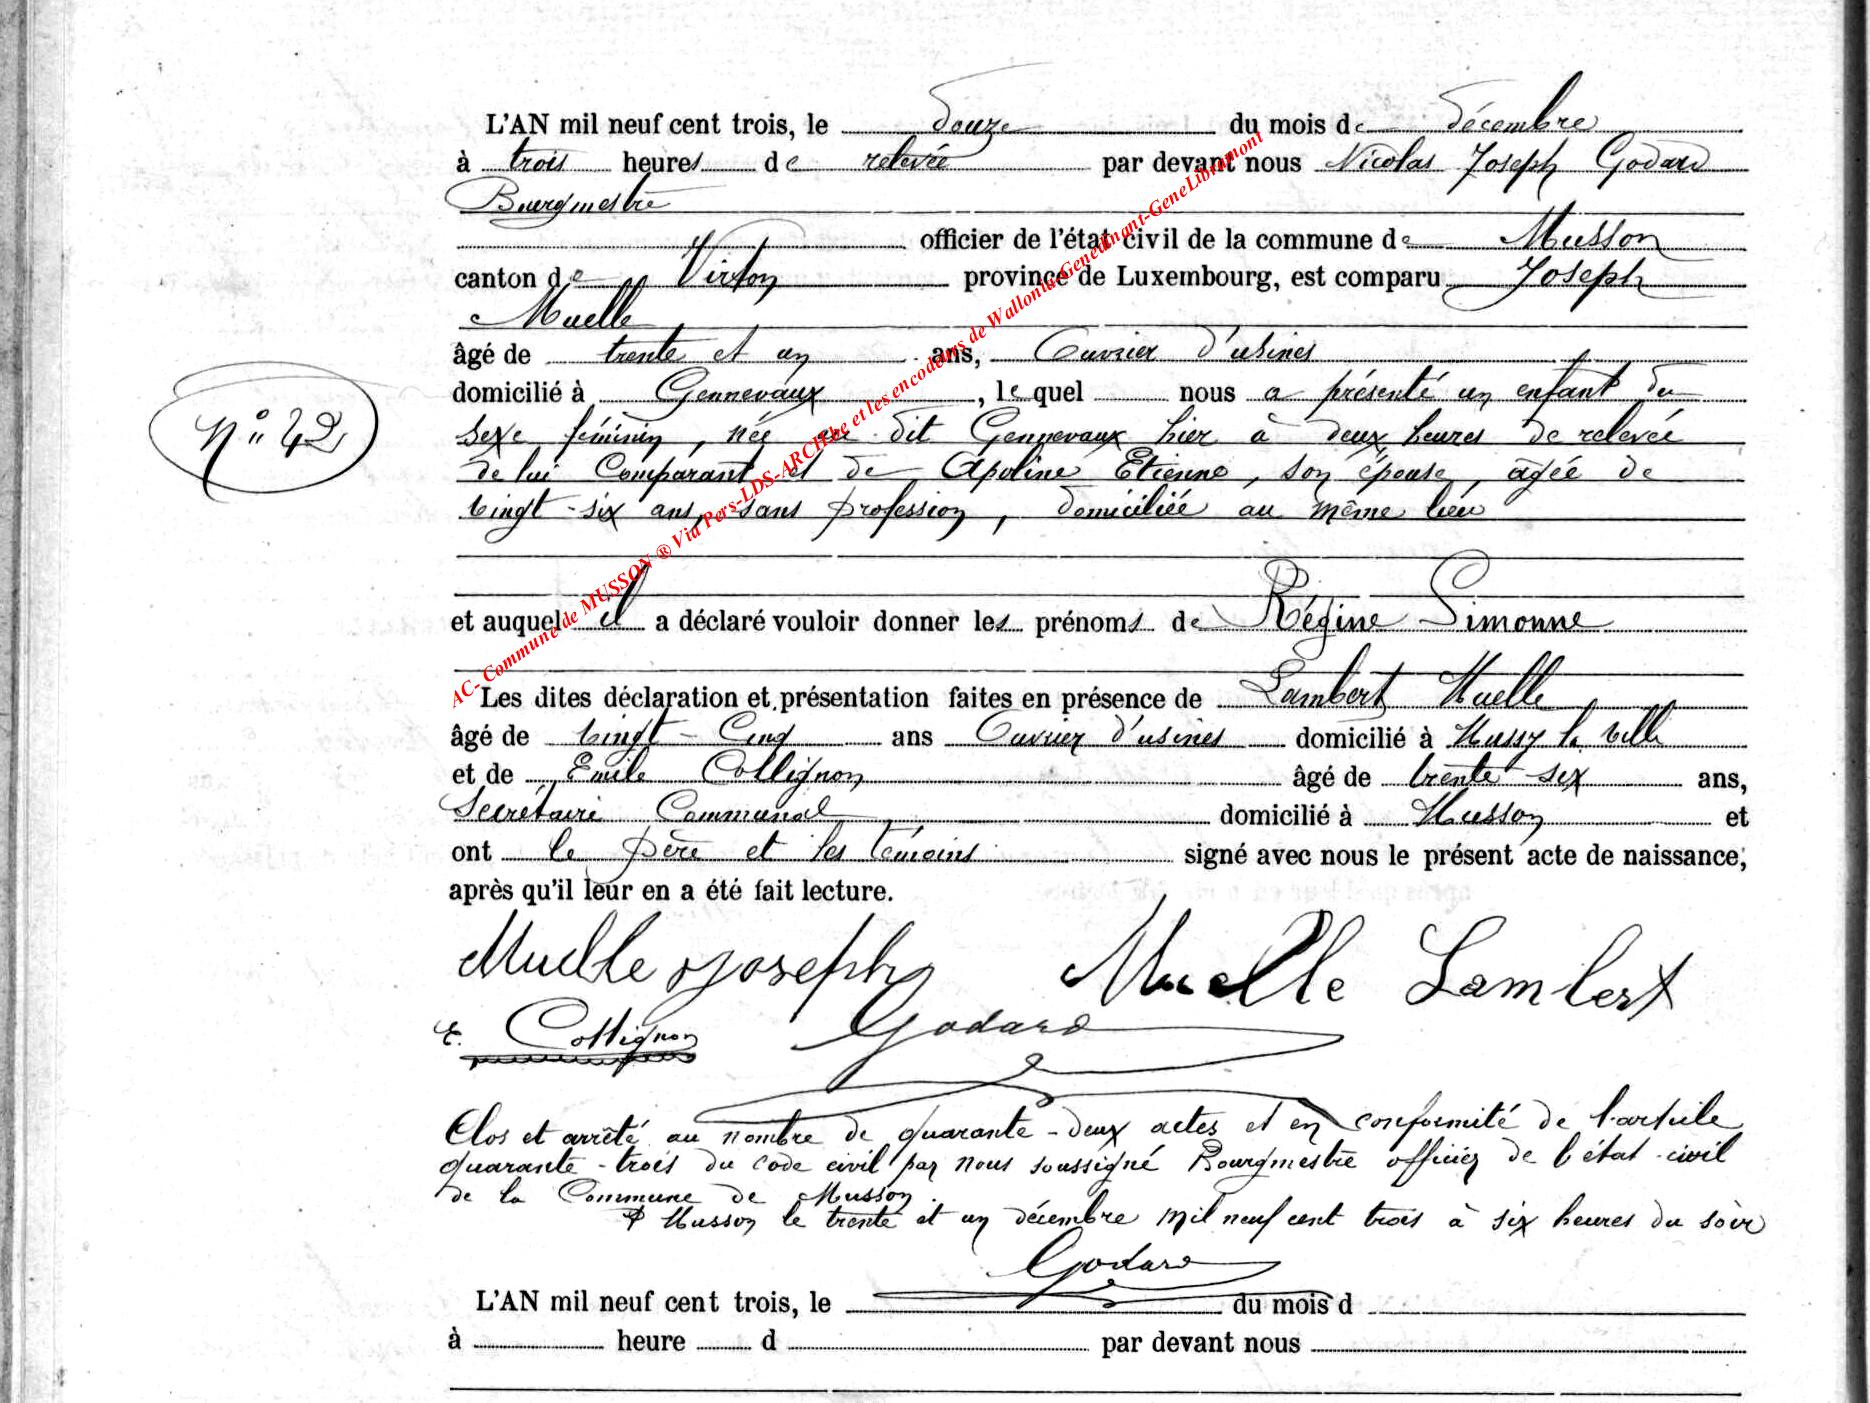 L'AN mil neuf cent trois, le douze du mois de décembre
à trois heures de relevée par devant nous Nicolas Joseph Godard
Bourgmestre
officier de l'état civil de la commune de Musson
canton de Virton province de Luxembourg, est comparu Joseph
Muelle
âgé de trente et un ans, Ouvrier d'usines
domicilié à Gennevaux, lequel nous a présenté un enfant du
N° 42
sexe féminin, née au dit Gennevaux hier à deux heures de relevée
de lui Comparant et de Apoline Etienne, son épouse, âgée de
vingt-six ans, sans profession, domiciliée au même lieu
et auquel il a déclaré vouloir donner les prénoms de Régine Simonne
Les dites déclaration et présentation faites en présence de Lambert Muelle
âgé de vingt-Cinq ans Ouvrier d'usines domicilié à Mussy la ville
et de Emile Collignon âgé de trente-six ans,
Secrétaire Communal domicilié à Musson et
ont le père et les témoins signé avec nous le présent acte de naissance,
après qu'il leur en a été fait lecture.
Muelle Joseph Muelle Lambert
E. Collignon Godard
Clos et arrêté au nombre de quarante-deux actes et en conformité de l'article
quarante-trois du code civil par nous soussigné Bourgmestre officier de l'état civil
de la Commune de Musson.
A Musson le trente et un décembre mil neuf cent trois à six heures du soir
Godard
L'AN mil neuf cent trois, le du mois d
à heure d par devant nous
AC- Commune de MUSSON ® Via Pers-LDS-ARCH be et les encodeurs de Wallonia-Genedinant-GeneLibramont